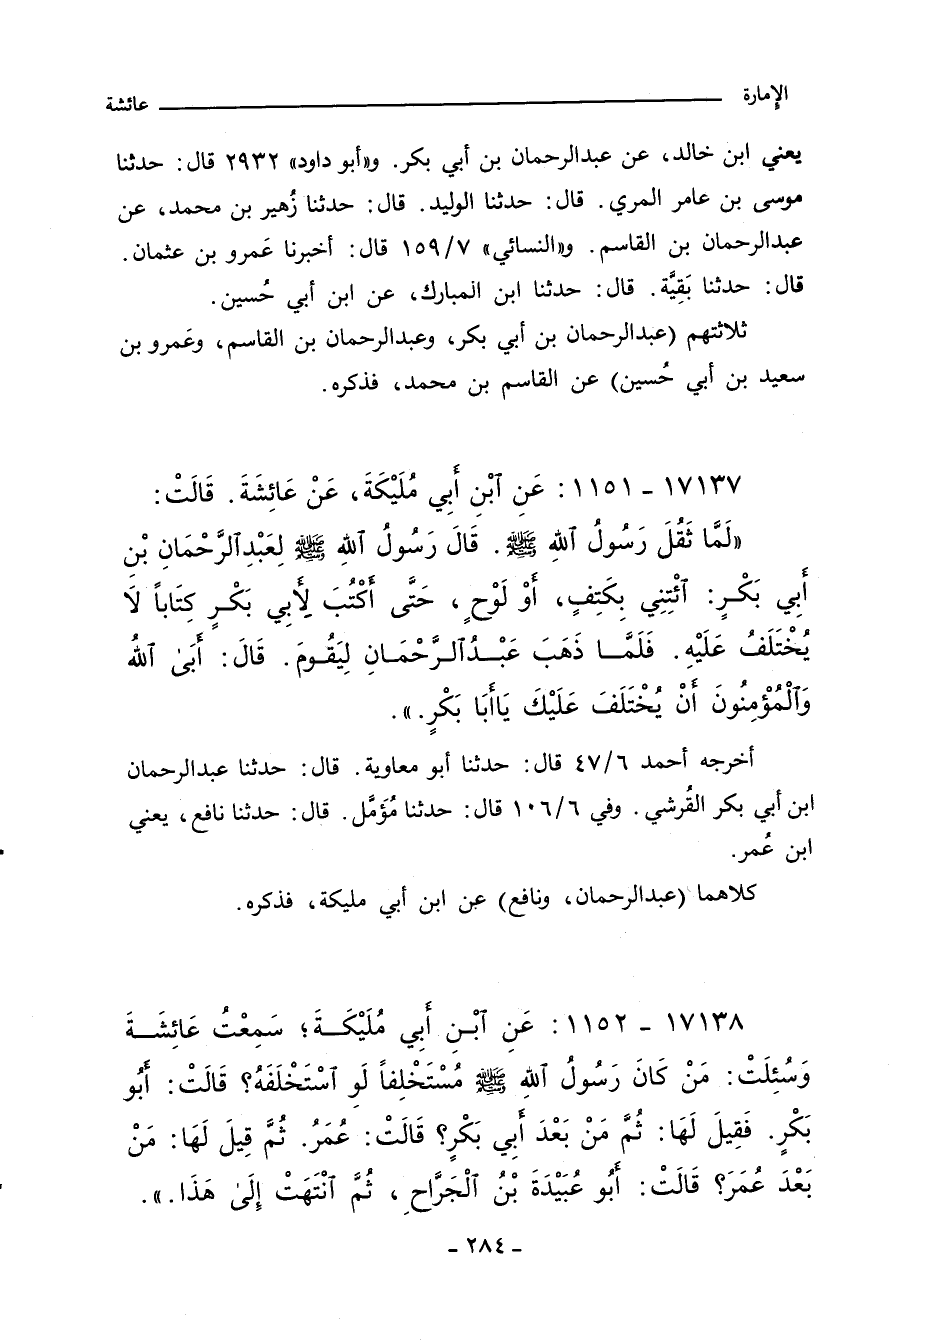 الإمارة ـــــــــ عائشة
يعني ابن خالد، عن عبدالرحمان بن أبي بكر. و«أبو داود» ٢٩٣٢ قال: حدثنا
موسى بن عامر المري. قال: حدثنا الوليد. قال: حدثنا زُهير بن محمد، عن
عبدالرحمان بن القاسم. و«النسائي» ١٥٩/٧ قال: أخبرنا عَمرو بن عثمان.
قال: حدثنا بَقِيَّة. قال: حدثنا ابن المبارك، عن ابن أبي حُسين.
ثلاثتهم (عبدالرحمان بن أبي بكر، وعبدالرحمان بن القاسم، وعَمرو بن
سعيد بن أبي حُسين) عن القاسم بن محمد، فذكره.
١٧١٣٧ - ١١٥١: عَنِ ٱبْنِ أَبِي مُلَيْكَةَ، عَنْ عَائِشَةَ. قَالَتْ:
«لَمَّا ثَقُلَ رَسُولُ ٱللهِ ﷺ. قَالَ رَسُولُ ٱللهِ ﷺ لِعَبْدِٱلرَّحْمَانِ بْنِ
أَبِي بَكْرٍ: ٱئْتِنِي بِكَتِفٍ، أَوْ لَوْحٍ، حَتَّى أَكْتُبَ لِأَبِي بَكْرٍ كِتَاباً لَا
يُخْتَلَفُ عَلَيْهِ. فَلَمَّا ذَهَبَ عَبْدُٱلرَّحْمَانِ لِيَقُومَ. قَالَ: أَبَىٰ ٱللهُ
وَٱلْمُؤْمِنُونَ أَنْ يُخْتَلَفَ عَلَيْكَ يَاأَبَا بَكْرٍ.».
أخرجه أحمد ٤٧/٦ قال: حدثنا أبو معاوية. قال: حدثنا عبدالرحمان
ابن أبي بكر القُرشي. وفي ١٠٦/٦ قال: حدثنا مُؤَمَّل. قال: حدثنا نافع، يعني
ابن عُمر.
كلاهما (عبدالرحمان، ونافع) عن ابن أبي مليكة، فذكره.
١٧١٣٨ - ١١٥٢: عَنِ ٱبْنِ أَبِي مُلَيْكَةَ؛ سَمِعْتُ عَائِشَةَ
وَسُئِلَتْ: مَنْ كَانَ رَسُولُ ٱللهِ ﷺ مُسْتَخْلِفاً لَوِ ٱسْتَخْلَفَهُ؟ قَالَتْ: أَبُو
بَكْرٍ. فَقِيلَ لَهَا: ثُمَّ مَنْ بَعْدَ أَبِي بَكْرٍ؟ قَالَتْ: عُمَرُ. ثُمَّ قِيلَ لَهَا: مَنْ
بَعْدَ عُمَرَ؟ قَالَتْ: أَبُو عُبَيْدَةَ بْنُ ٱلْجَرَّاحِ، ثُمَّ ٱنْتَهَتْ إِلَىٰ هَذَا.».
- ٢٨٤ -